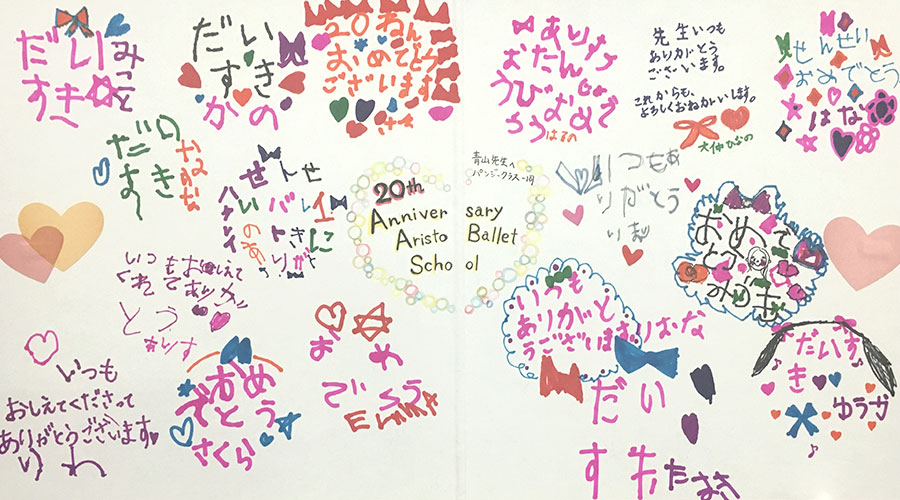 だいすき
みこと
だいすき
かの
20ねん
おめでとう
ございます
ありがとう
はるの
先生いつも
ありがとう
ございます。
これからも、
よろしくおねがいします。
大仲ひなの
せんせい
おめでとう
はな
だいすき
せんせ
20th
Anniversary
Aristo Ballet
School
青山先生へ
パンジークラス一同
いつもあ
りがとう
おめで
とう
いつも
ありがと
うございます。
りおな
いつもおしえて
くれてありが
とう
ありす
いつも
おしえてくださって
ありがとうございます
りわ
おめ
でとう
さくら
おめ
でとう
EMMA
だい
すき
だいす
き
ゆうか